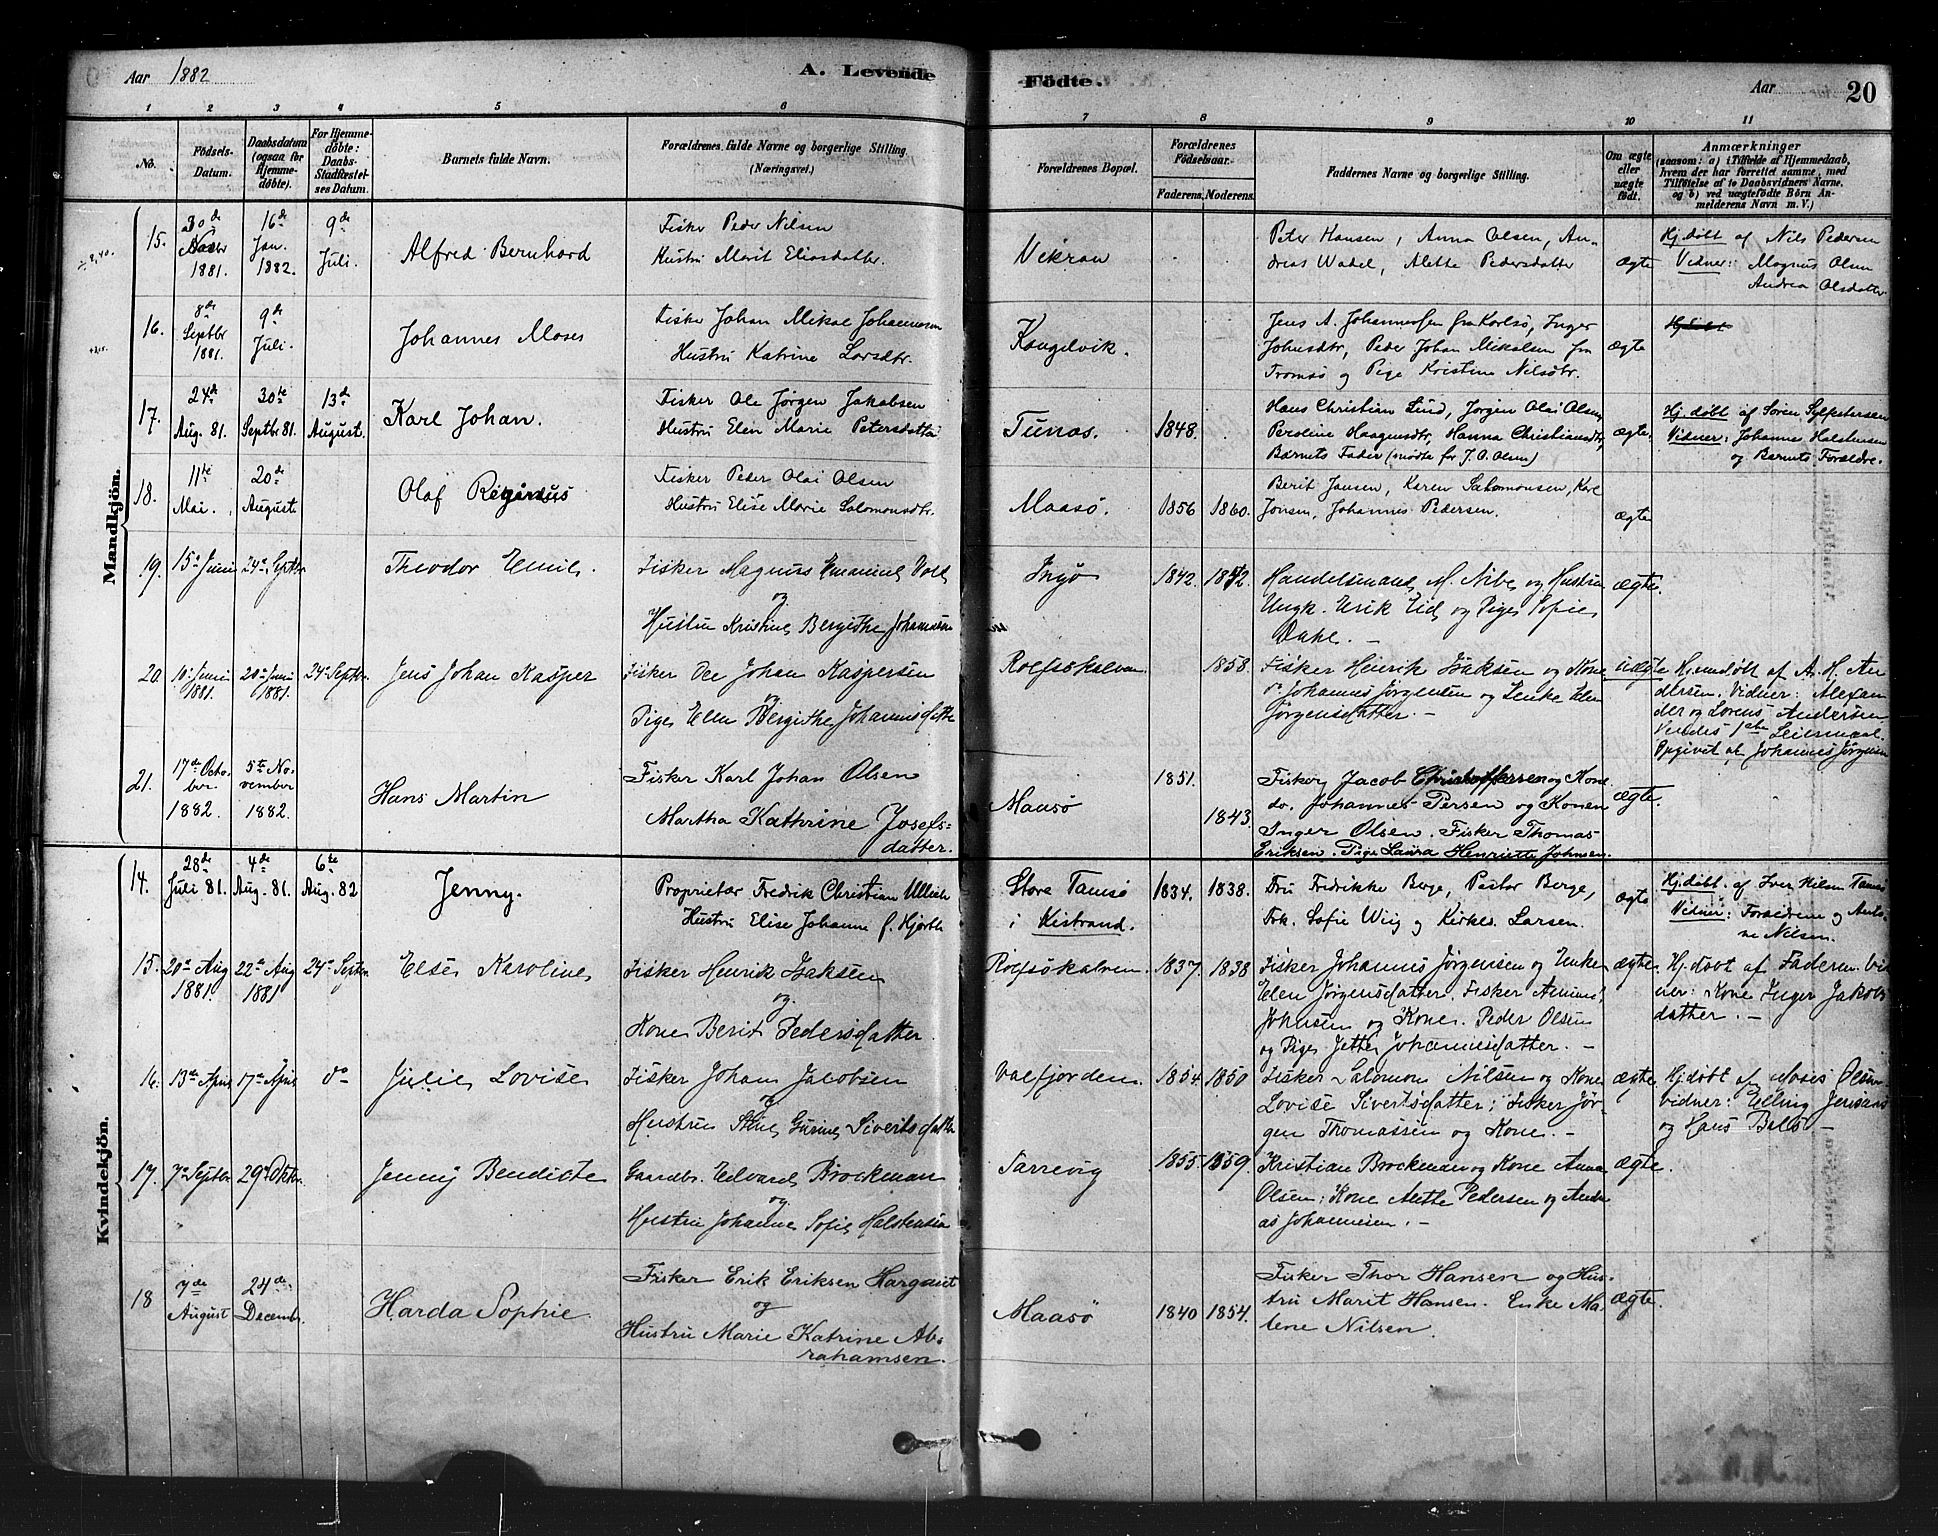 Aar 1882
A. Levende Födte.
Aar
20
1 2 3 4 5 6 7 8 9 10 11
No.
Födsels-Datum.
Daabsdatum (ogsaa for Hjemme-døbte).
For Hjemme-døbte: Daabs-Stadfæstel-ses Datum.
Barnets fulde Navn.
Forældrenes fulde Navne og borgerlige Stilling (Næringsvei.)
Forældrenes Bopæl.
Forældrenes Födselsaar.
Faderens. Moderens.
Faddernes Navne og borgerlige Stilling.
Om ægte eller uægte født.
Anmærkninger
(saasom: a) i Tilfælde af Hjemmedaab, hvem der har forrettet samme, med Tilföielse af to Daabsvidners Navne, og b) ved uægtefödte Börn An-melderens Navn m. V.)
Mandkjön.
15. 30de Novbr 1881. 16de Jan. 1882. 9de Juli. Alfred Bernhard
Fisker Peder Nilsen
Hustru Marit Eliasdatter.
Vikran
Peter Hansen, Anna Olsen, An-
dreas Wadel, Alette Pedersdatter
ægte
Hj.døbt af Nils Pedersen
Vidner: Magnus Olsen
Andrea Olsdatter
16. 8de Septbr 1881. 9de Juli. Johannes Moses
Fisker Johan Mikal Johannesen
Hustru Katrine Larsdtr.
Jens A. Johannesen fra Karlsö, Inger
Johnsdtr, Peder Johan Mikalsen fra
Tromsö og Pige Kristine Nilsdtr.
ægte
17. 24de Aug. 81. 30te Septbr 81. 13de August. Karl Johan.
Fisker Ole Jørgen Jakobsen
Hustru Elen Marie Petersdatter
Tunes. 1848.
Hans Christian Lund, Jørgen Olai Olsen,
Peroline Haagensdtr, Hanna Christiansdtr,
Barnets Fader (mødte for J. O. Olsen)
ægte.
Hj.døbt af Søren Sylfestersen
Vidner: Johannes Halstensen
og Barnets Forældre.
18. 11te Mai. 20de Auguste Olaf
Fisker Peder Olai Olsen
Hustru Elise Marie Salomonsdtr.
Maasø. 1856 1860.
Berit Jansen, Karen Salomonsen, Karl
Jonsen, Johannes Pedersen.
ægte
19. 15de Juni 24de Septbr Theodor Emil.
Fisker Magnus Emanuel Vold
og
Hustru Kristine Bergithe Johannesen
Ingø 1842.
Handelsmand M. Nibe og Hustru
Ungk. Erik Eid og Pige Sofie
Dahl. —
ægte.
20. 10de Juni 1881. 20de Juni 1881. 24de Septbr. Jens Johan Kasper
Fisker Ole Johan Kaspersen
og
Pige Elen Bergithe Johannesdatter
Rolfsökalven 1858.
Fisker Henrik Isaksen og Kone
do Johannes Jørgensen og Enke Elen
Jørgensdatter. —
uægte
Hjemmdøbt af A. H. An-
dersen. Vidner: Alexan-
der og Lorens Andersen.
Opgivet af Johannes Jørgensen
21. 17de October 1882 5te November 1882. Hans Martin
Fisker Karl Johan Olsen
Martha Kathrine Josefs-
datter.
Maasø 1851. 1843.
Fisker Jacob Christoffersen og Kone
do. Johannes Persen og Konen
Inger Olsen. Fisker Thomas
Eriksen. Pige Laura Henriette Johnsen.
ægte.
Kvindekjön.
14. 28de Juli 81. 4de Aug. 81. 6te Aug. 82 Jenny.
Proprietær Fredrik Christian Ulich
Hustru Elise Johanne f. Hjorth
Store Tamsø i Kistrand. 1834. 1838.
Fru Fredrikke Berge, Pastor Berge,
Frk. Sofie Wiig og Kirkes. Larsen.
ægte
Hj.døbt. af Iver Nilsen Tamsø
Vidner: Forældrene og Anto-
ne Nilsen.
15. 20de Aug 1881. 22de Aug 1881 24de Septbr Else Karoline
Fisker Henrik Isaksen
og
Kone Berit Pedersdatter.
Rolfsökalven. 1837. 1838
Fisker Johannes Jørgensen og Enke
Elen Jørgensdatter. Fisker
Johnsen og Kone. Peder Olsen
og Pige Jette Johannesdatter. —
ægte.
Hj.døbt af Faderen. Vid-
ner: Kone Inger Jakobs
datter. —
16. 13de April 17de April do Julie Lovise
Fisker Johan Jacobsen
og
Hustru Stine Gurine Sivertsdatter
1854. 1850
Fisker Salomon Nilsen og Kone
Lovise Sivertsdatter; Fisker Jør-
gen Thomassen og Kone. —
ægte.
Hj.døbt af Moses Olsen
vidner: Elling
og Hans
17. 7de Septbr 29de Oktbr. Jenny Bendicte
Gaardbr. Edvard Brockman
og
Hustru Johanne Sofie Halstensen
Sarrevig 1855. 1859.
Kristian Brockman og Kone Anna
Olsen; Kone Anette Pedersen og Andre-
as Johannesen. —
ægte.
18 7de August 24de Decembr. Harda Sophie.
Fisker Erik Eriksen Hargaut
og
Hustru Marie Katrine Ab-
rahamsen.
Maasö 1840 1854.
Fisker Thor Hansen og Hus-
tru Marit Hansen. Enke Ma-
lene Nilsen.
ægte.